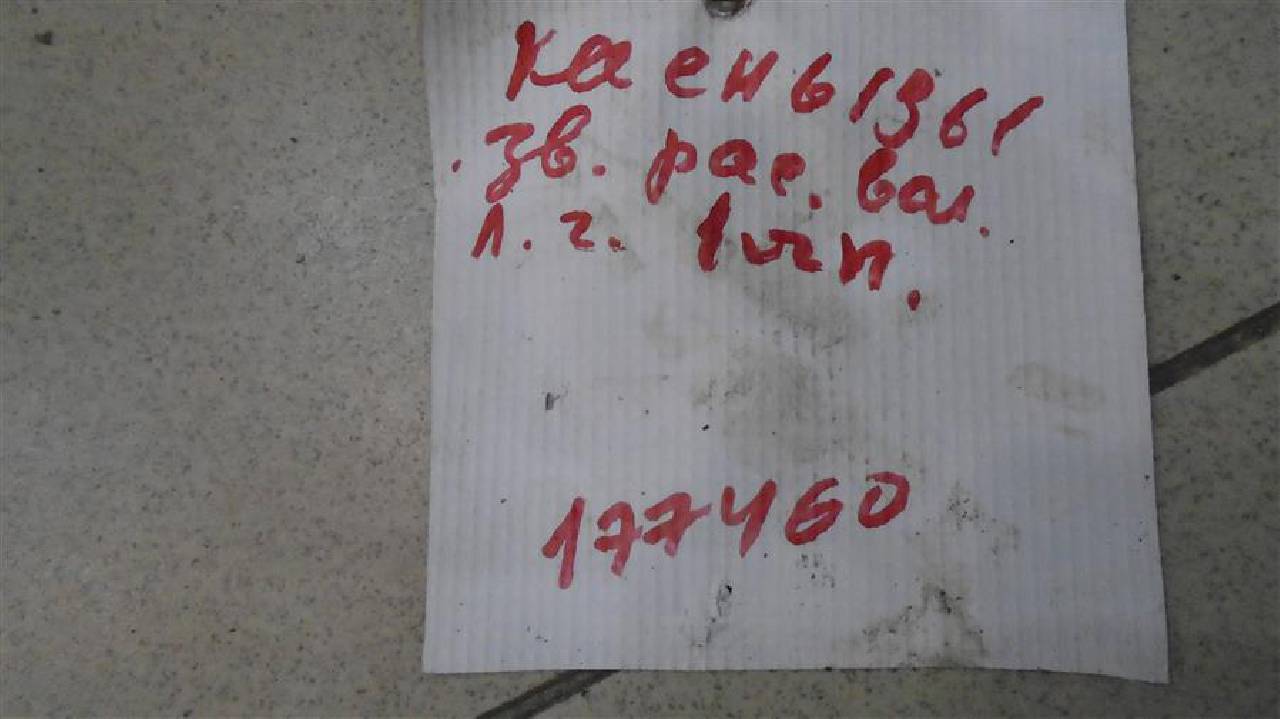 Каен 61361
зв. рас. вал.
л. г. 1шт.
177460